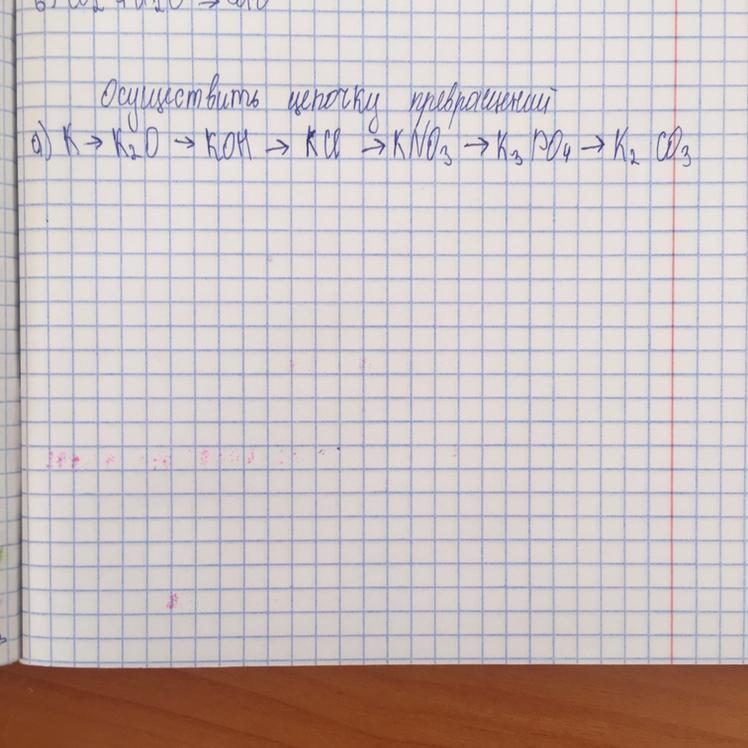 Осуществить цепочку превращений
а) K → K₂O → KOH → KCl → KNO₃ → K₃PO₄ → K₂CO₃